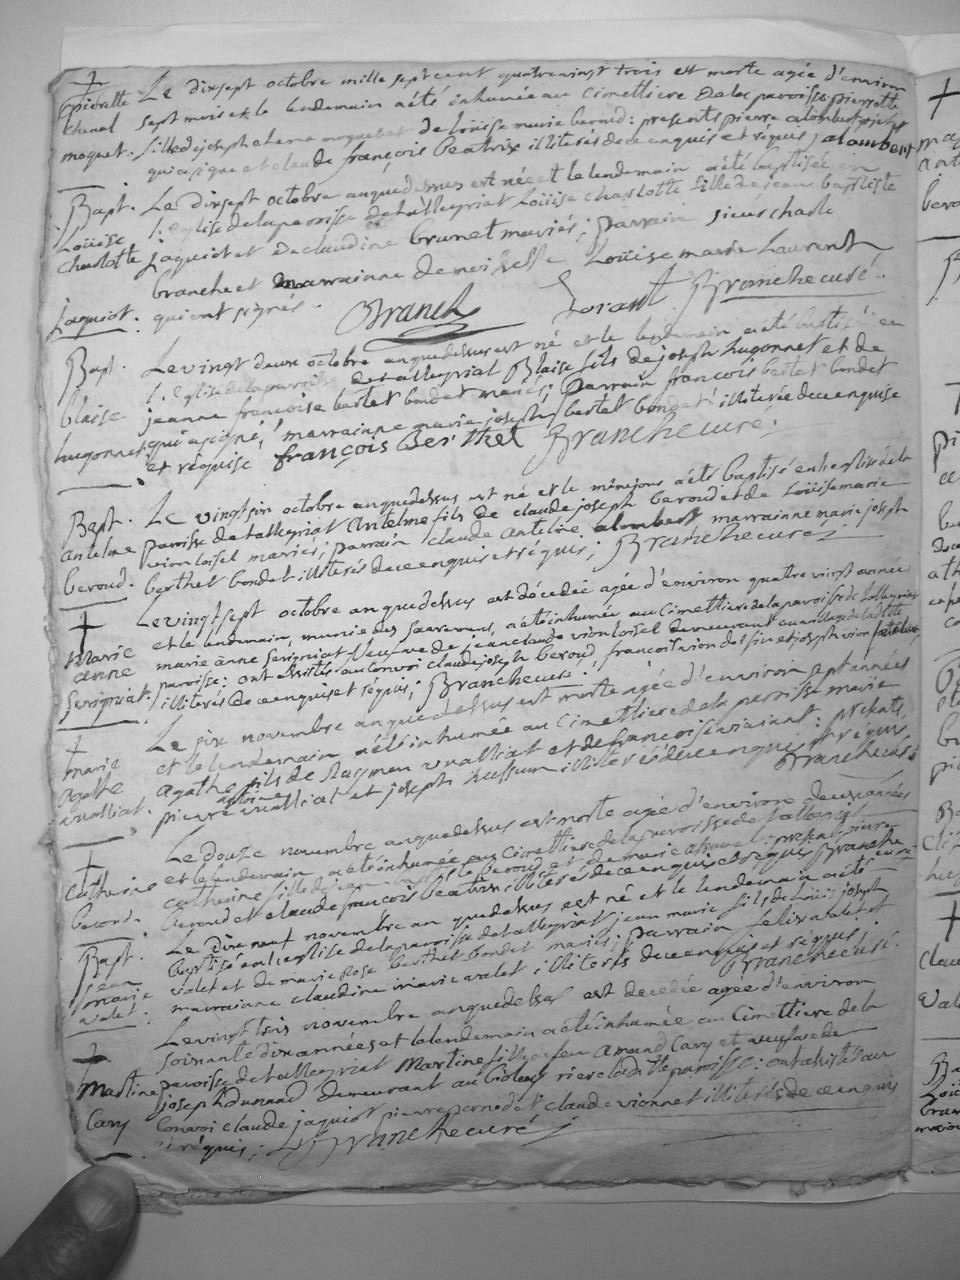 Le dixsept octobre mille sept cent quatrevingt trois est morte agée d'environ
sept mois et le lendemain a été inhumée au Cimettiere de la paroisse pierrette
fille de joseph moquet de Loüise marie beroud: presents pierre alombert
qui a signé et claude françois beatrix illiterés de ce enquis et requis j alombert
Bapt. Le dixsept octobre an que dessus est née et le lendemain a été baptisée en
Loüise l'eglise de la paroisse de talleyriat Loüise charlotte fille de jean baptiste
charlotte jaquiot et de claudine brunet mariés; parrain sieur charle
branche et marrainne demoiselle Loüise marie Laurent
jaquiot. qui ont signés. Branch Lorant Branche curé.
Bapt. Le vingt deux octobre an que dessus est né et le lendemain a été baptisé en
blaise l'Eglise de la paroisse de talleyriat Blaise fils de joseph hugonnet et de
jeanne francoise bertet bondet mariés; parrain françois bertet bondet
hugonnet. qui a signé, marrainne marie joseph bertet bondet illiterée de ce enquise
et réquise françois Berthet Branche curé.
Bapt. Le vingt six octobre an que dessus est né et le même jour a été baptisé en l'eglise de la
Antelme paroisse de talleyriat Antelme fils de claude joseph beroud et de Loüise marie
vion loisel mariés; parrain claude Antelme alombert marrainne marie joseph
beroud. berthet bondet illiterés de ce enquis et réquis; Branche curé
Le vingt sept octobre an que dessus est décédée agée d'environ quatre vingt années
Marie et le lendemain, munie des sacremens, a été inhumée au Cimettiere de la paroisse de talleyriat
anne marie anne Serigniat Veufve de jean claude vion loisel demeurant au village de la ditte
paroisse: ont assistés au convoi claude joseph beroud, francois vion et joseph vion
Serigniat. illiterés de ce enquis et réquis; Branche curé.
Le six novembre an que dessus est morte agée d'environ sept années
marie et le lendemain a été inhumée au Cimettiere de la paroisse marie
Agathe agathe fils de Raymon vualliat et de francoise: presents
antoine
vualliat. pierre vualliat et joseph illiterés de ce enquis et réquis
Branche curé
Le douze novembre an que dessus est morte agée d'environ deux années
Catherine et le lendemain a été inhumée au Cimettiere de la paroisse de talleyriat
catherine fille de beroud et de marie: presents pierre
beroud. beroud et claude francois beatrix illiterés de ce enquis et requis Branche curé
Bapt. Le dix neuf novembre an que dessus est né et le lendemain a été
jean baptisé en l'eglise de la paroisse de talleyriat jean marie fils de Loüis joseph
marie valet et de marie Rose berthet bondet mariés; parrain felix valet et
valet. marrainne claudine marie valet illiterés de ce enquis et réquis
Branche curé.
Le vingt six novembre an que dessus est décédée agée d'environ
soixante dix années et le lendemain a été inhumée au Cimettiere de la
Martine paroisse de talleyriat Martine fille de feu Amand Cary et veufve de
joseph dunand demeurant au riere la ditte paroisse: ont assisté au
Cary Convoi claude jaquiot pierre et claude vionnet illiterés de ce enquis
et réquis; Branche curé